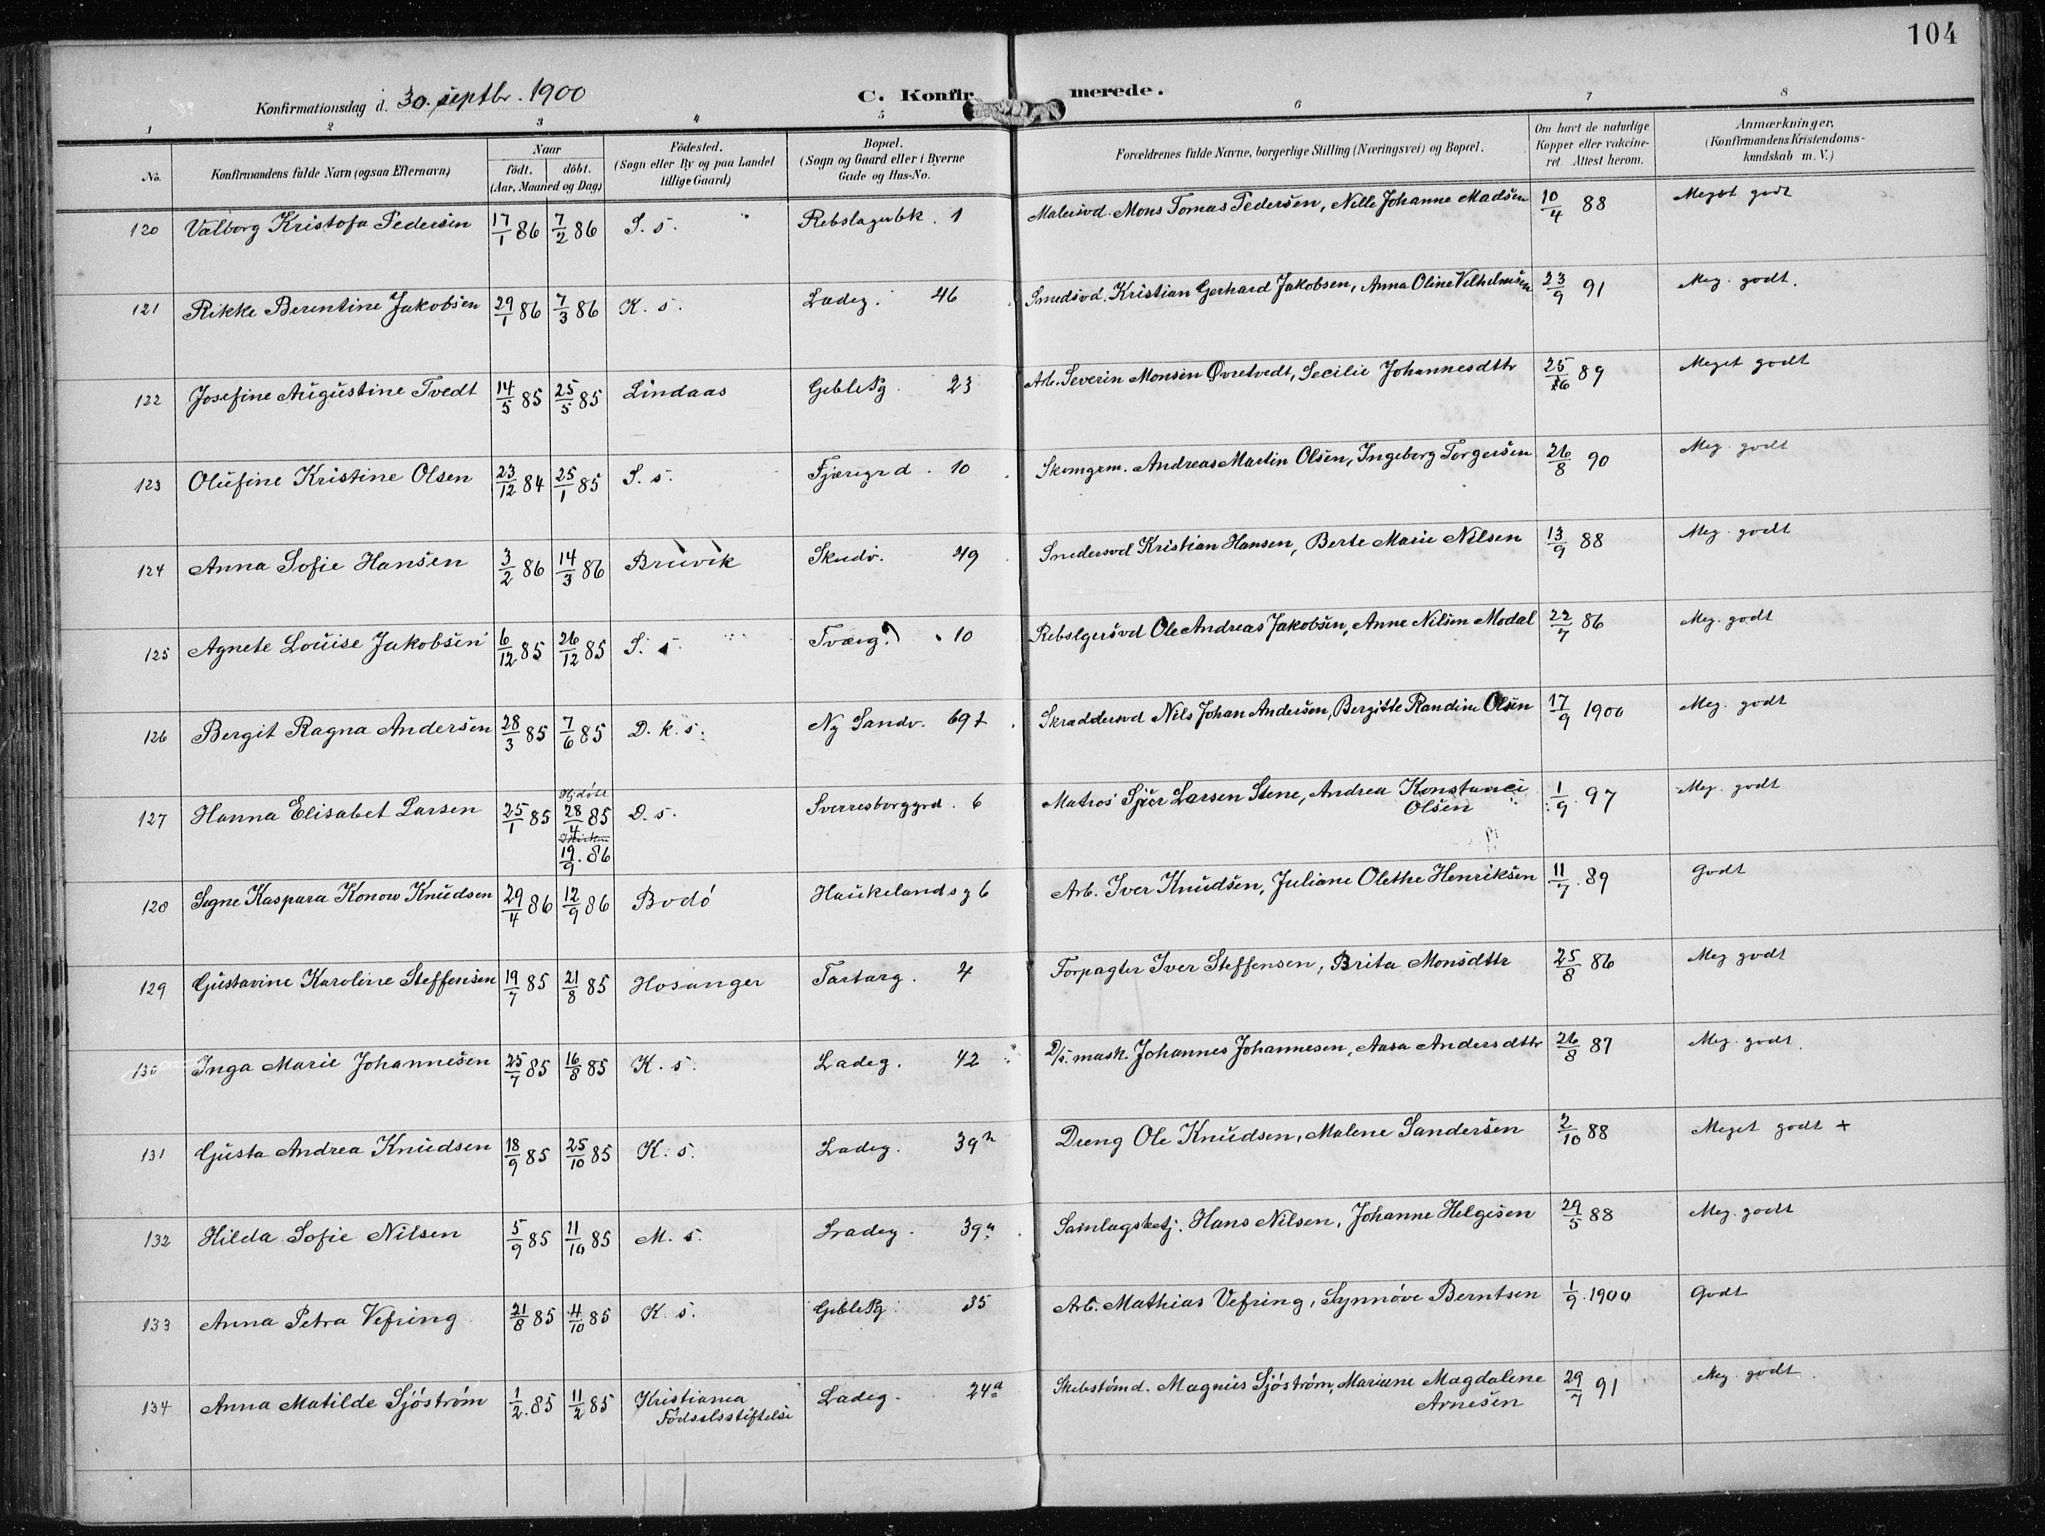 104
Konfirmationsdag d. 30. septbr. 1900 C. Konfirmerede.
1 2 3 4 5 6 7 8
No. Konfirmandens fulde Navn (ogsaa Efternavn)
Naar
födt. döbt.
(Aar, Maaned og Dag)
Födested.
(Sogn eller By og paa Landet
tillige Gaard)
Bopæl.
(Sogn og Gaard eller i Byerne
Gade og Hus-No.
Forældrenes fulde Navne, borgerlige Stilling (Næringsvei) og Bopæl.
Om havt de naturlige
Kopper eller vakcine-
ret. Attest herom.
Anmærkninger.
(Konfirmandens Kristendoms-
kundskab m. V.)
120 Valborg Kristofa Pedersen 17/1 86 7/2 86 S. s. Rebslagerbk. 1 Malersvd. Mons Tomas Pedersen, Nille Johanne Madsen 10/4 88 Meget godt
121 Rikke Berentine Jakobsen 29/1 86 7/3 86 K. s. Ladeg. 46 Smedsvd. Kristian Gerhard Jakobsen, Anna Oline Vilhelmsen 23/9 91 Meg. godt.
122 Josefine Augustine Tvedt 14/5 85 25/5 85 Lindaas GeblePg. 23 Arb. Severin Monsen Øvretvedt, Secilie Johannesdttr 25/ 89 Meget godt
123 Olufine Kristine Olsen 23/12 84 25/1 85 S. s. Fjæregrd. 10 Skomgrm. Andreas Martin Olsen, Ingeborg Torgersen 26/8 90 Meg. godt
124 Anna Sofie Hansen 3/2 86 14/3 86 Bruvik Skudv. 49 Smedersvd Kristian Hansen, Berte Marie Nilsen 13/9 88 Meg. godt
125 Agnete Louise Jakobsen 6/12 85 26/12 85 S. s. Tværg. 10 Rebslgersvd Ole Andreas Jakobsen, Anne Nilsen Modal 22/7 86 Meg. godt
126 Bergit Ragna Andersen 28/3 85 7/6 85 D. k. s. Ny Sandv. 69 Skraddersvd Nils Johan Andersen, Bergitte Randine Olsen 17/9 1900 Meg. godt
127 Hanna Elisabet Larsen 25/1 85 Hjdöbt 28/4 85 D. s. Sverresborggrd. 6 Matros Sjur Larsen Stene, Andrea Konstance 1/9. 97 Meg. godt
Olsen
i Kirken
19/9. 86
128 Signe Kaspara Konow Knudsen 29/4 86 12/9 86 Bodö Haukelandsg 6 Arb. Iver Knudsen, Juliane Olethe Henriksen 11/7. 89 Godt
129 Gustavine Karoline Steffensen 19/7 85 21/8 85 Hosanger Tartarg. 4 Forpagter Iver Steffensen, Brita Monsdttr 25/8 86 Meg godt
130 Inga Marie Johannesen 25/7 85 16/8 85 K. s. Ladeg. 42 D/s. mask. Johannes Johannesen, Aasa Andersdttr 26/8 87 Meg. godt.
131 Gusta Andrea Knudsen 18/9 85 25/10 85 K. s. Ladeg. 39 Dreng Ole Knudsen, Malene Sandersen 2/10 88 Meget godt +
132 Hilda Sofie Nilsen 5/9 85 11/10 85 M. s. Ladeg. 39a Samlagsbetj. Hans Nilsen, Johanne Helgesen 29/5 88 Meg. godt
133 Anna Petra Vefring 21/8 85 4/10 85 K. s. GeblePg. 35 Arb. Mathias Vefring, Synnöve Berntsen 1/9. 1900 Godt
134 Anna Matilde Sjöström 1/2. 85 11/2 85 Kristiania Ladeg. 24a Skibstömd. Magnus Sjöström, Mariane Magdalene 29/7 91 Meg. godt
Födselsstiftelse Arnesen